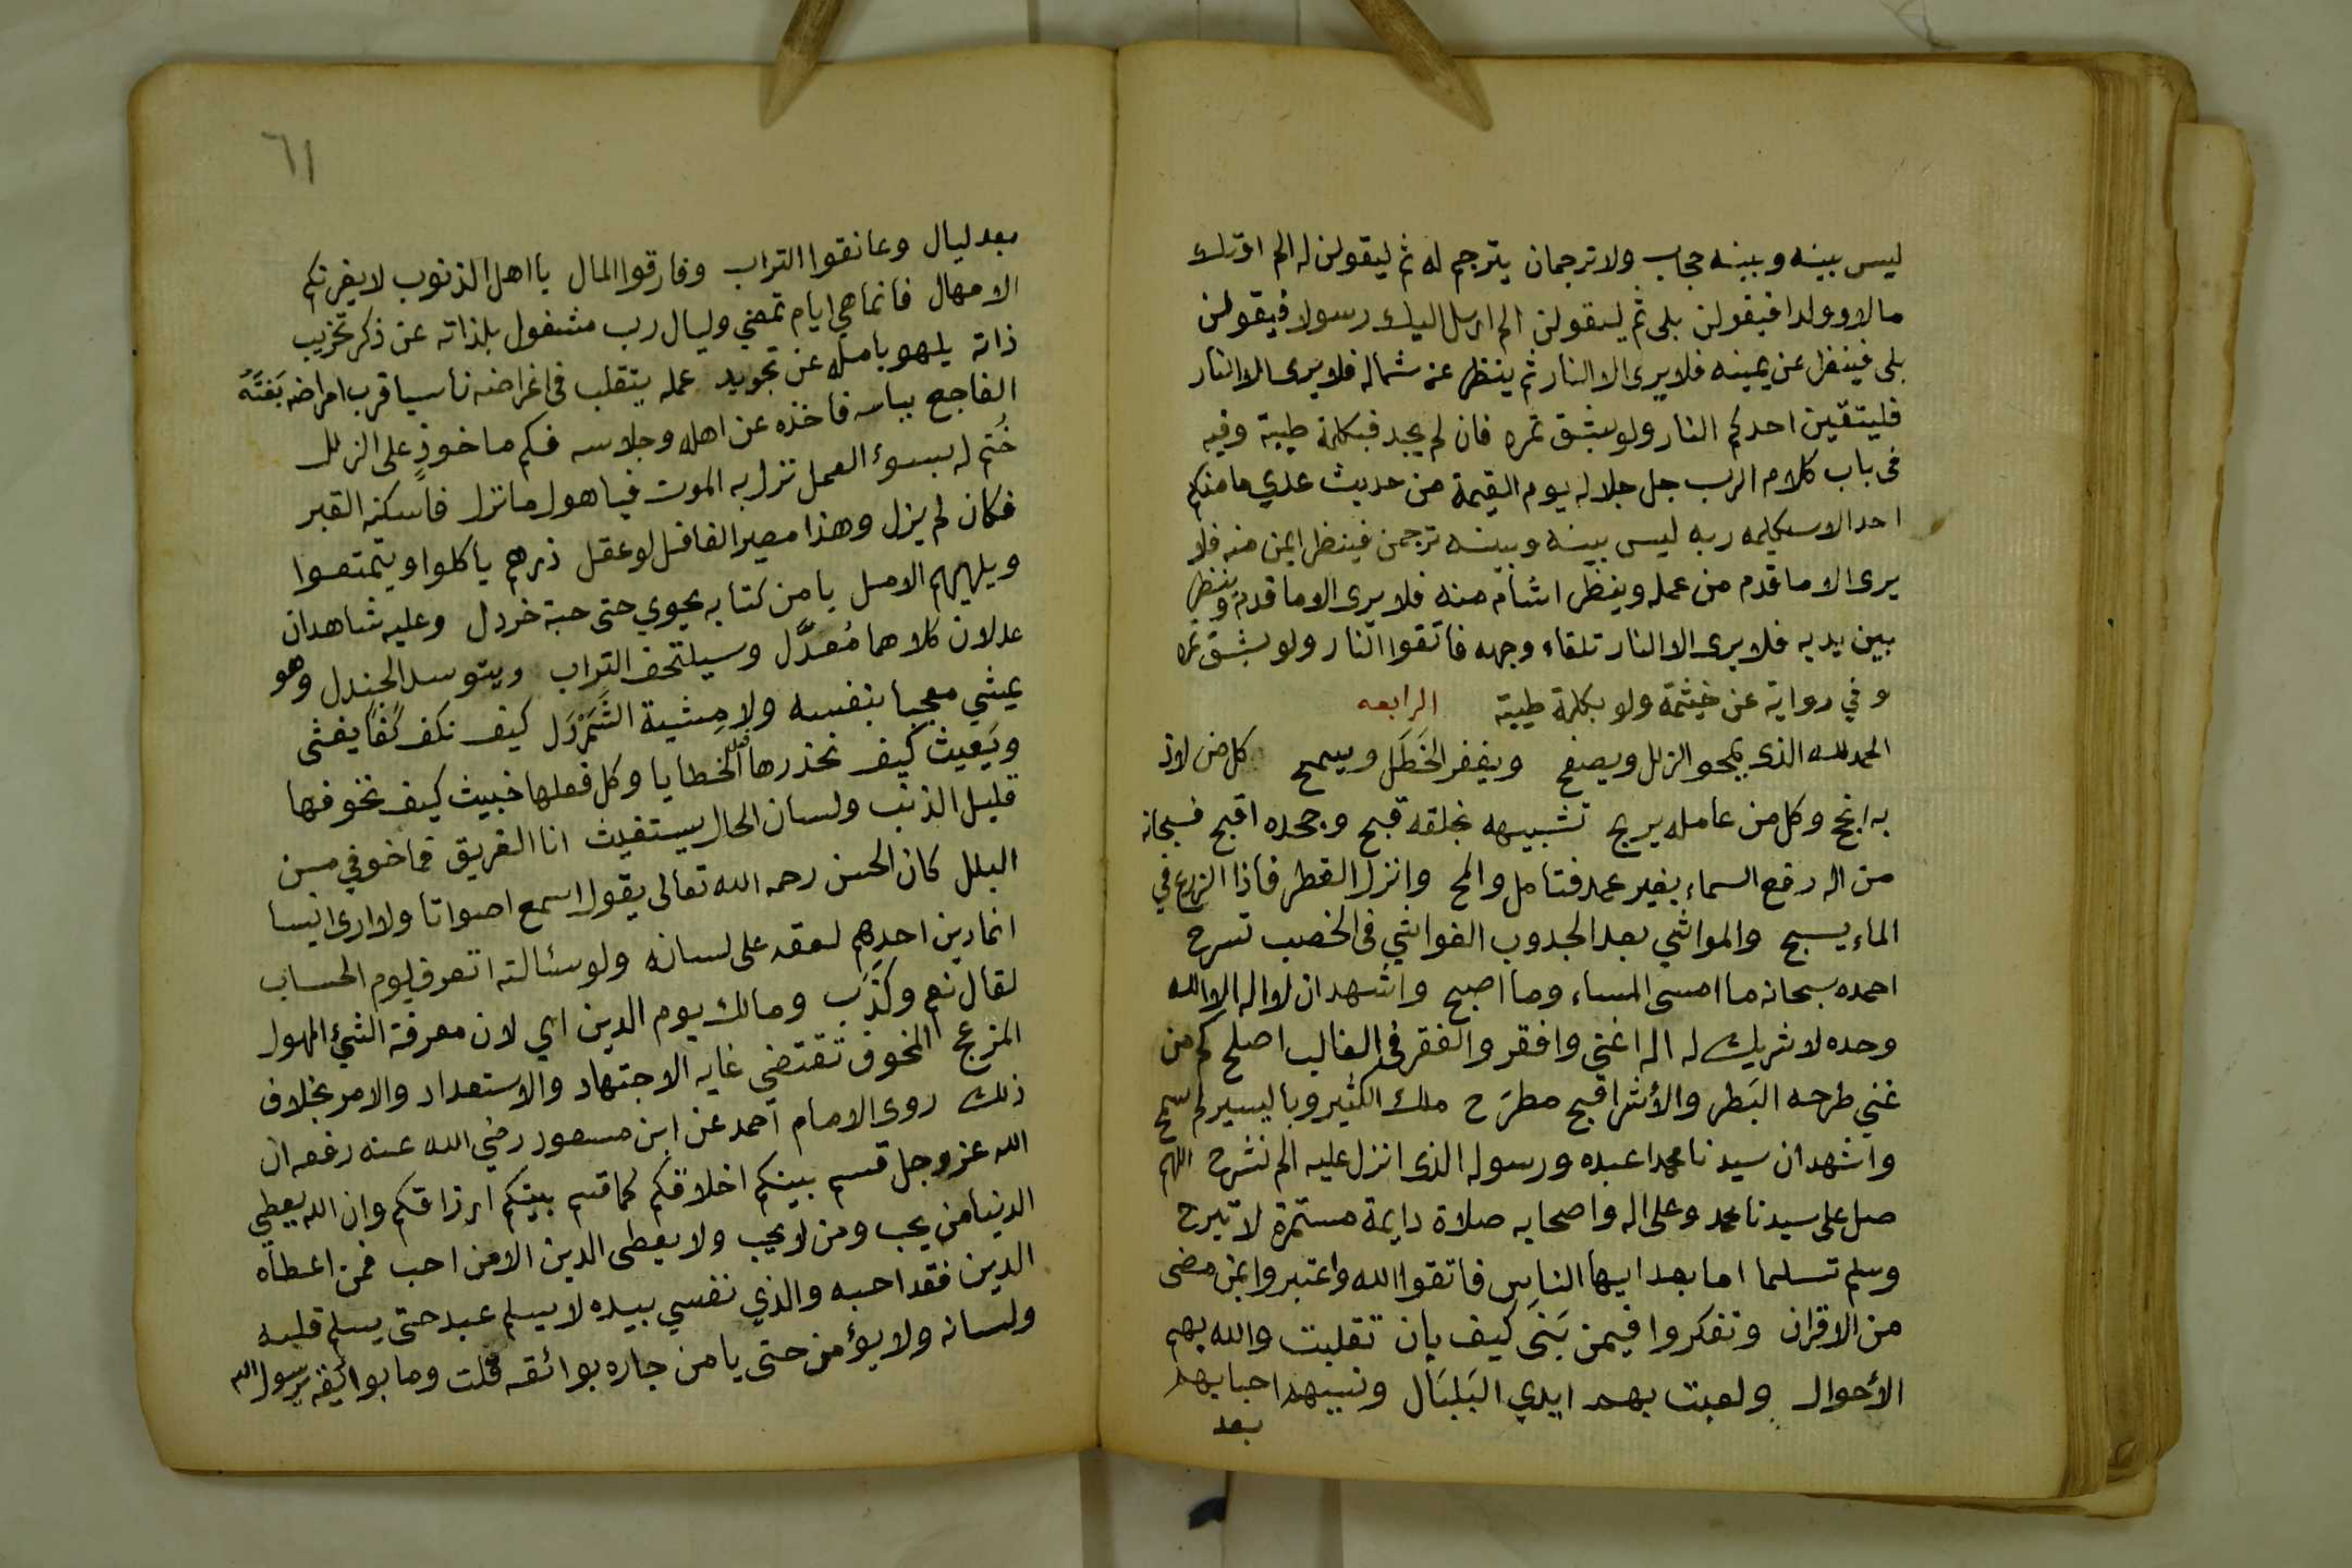 ليس بينه وبينه حجاب ولا ترجمان يترجم له ثم ليقولن له الم اوتك
مالا وولدا فيقولن بلى ثم ليقولن الم ارسل اليك رسولا فيقولن
بلى فينظر عن يمينه فلا يرى الا النار ثم ينظر عن شماله فلا يرى الا النار
فليتقين احدكم النار ولو بشق تمره فان لم يجد فبكلمة طيبة وفيه
فى باب كلام الرب جل جلاله يوم القيمة من حديث عدي ما منكم
احد الا سيكلمه ربه ليس بينه وبينه ترجمن فينظر ايمن منه فلا
يرى الا ما قدم من عمله وينظر اشأم منه فلا يرى الا ما قدم وينظر
بين يديه فلا يرى الا النار تلقاء وجهه فاتقوا النار ولو بشق تمره
وفي رواية عن خيثمة ولو بكلمة طيبة الرابعه
الحمد لله الذى يمحو الزلل ويصفح ويغفر الخَطَل ويسمح كل من لاذ
به انجح وكل من عامله يربح تشبيهه بخلقه قبح وجحده اقبح فسبحانه
من اله رفع السماء بغير عمد فتامل والمح وانزل القطر فاذا الزرع في
الماء يسبح والمواشي بعد الجدوب الغواشي فى الخصب تسرح
احمده سبحانه ما امسى المساء وما اصبح واشهد ان لا اله الا الله
وحده لا شريك له اله اغنى وافقر والفقر فى الغالب اصلح كم من
غني طرحه البَطر والأشر اقبح مطرَح ملك الكثير وباليسير لم يسمح
واشهد ان سيدنا محمدا عبده ورسوله الذى انزل عليه الم نشرح اللهم
صل على سيدنا محمد وعلى اله واصحابه صلاة دايمة مستمرة لا تبرح
وسلم تسلما اما بعد ايها الناس فاتقوا الله واعتبروا بمن مضى
من الاقران وتفكروا فيمن بَنَى كيف بان تقلبت والله بهم
الأحوال ولعبت بهم ايدي البَلبَال ونسيهم احبابهم
بعد
٦١
بعد ليال وعانقوا التراب وفارقوا المال يا اهل الذنوب لا يغرنكم
الامهال فانما هي ايام تمضي وليال رب مشغول بلذاته عن ذكر تخريب
ذاته يلهو بامله عن تجويد عمله يتقلب فى اغراضه ناسيا قرب امراضه بَغتَةً
الفاجع بباسه فاخذه عن اهله وجلاسه فكم ماخوذٍ على الزلل
خُتم له بسوء العمل نزل به الموت فيا هول ما نزل فاسكنه القبر
فكان لم يزل وهذا مصير الغافل لو عقل ذرهم ياكلوا ويتمتعوا
ويلههم الامل يا من كتابه يحوي حتى حبة خردل وعليه شاهدان
عدلان كلاهما مُعدَّل وسيلتحف التراب ويتوسد الجندل وهو
يمشي معجبا بنفسه ولا مِشية الشَمَرْدَل كيف نكف كفًا يغشى
ويَعيث كيف نحذرها قبل الخطايا وكل فعلها خبيث كيف نخوفها
قليل الذنب ولسان الحال يستغيث انا الغريق فما خوفي من
البلل كان الحسن رحمه الله تعالى يقول اسمع اصواتا ولا ارى انيسا
انما دين احدهم لعقه على لسانه ولو سئالته اتعرف يوم الحساب
لقال نعم وكذَبَ ومالك يوم الدين اي لان معرفة الشيء المهول
المزعج المخوف تقتضي غايه الاجتهاد والاستعداد والامر بخلاف
ذلك روى الامام احمد عن ابن مسعود رضي الله عنه رفعه ان
الله عز وجل قسم بينكم اخلاقكم كما قسم بينكم ارزاقكم وان الله يعطي
الدنيا من يحب ومن لا يحب ولا يعطى الدين الا من احب فمن اعطاه
الدين فقد احبه والذي نفسي بيده لا يسلم عبد حتى يسلم قلبه
ولسانه ولا يؤمن حتى يا من جاره بوائقه قلت وما بوائقه يرسول الله